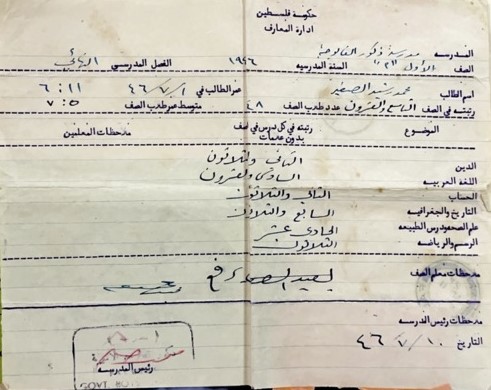 حكومة فلسطين
ادارة المعارف
المدرسه مدرسة ذكور الفالوجة
الصف الاول "٢" السنة المدرسيه ١٩٤٦ الفصل المدرسي النهائي
اسم الطالب محمد رشيد الصغير عمر الطالب في ٤٦/٧/١ ٦:١١
رتبته في الصف التاسع والعشرون عدد طلاب الصف ٤٨ متوسط عمر طلاب الصف ٧:٥
الموضوع رتبته في كل درس في الصف بدون علامات ملاحظات المعلمين
الدين الثاني والثلاثون
اللغة العربيه السادس والعشرون
الحساب الثاني والثلاثون
التاريخ والجغرافيه السابع والثلاثون
علم الصحة ودرس الطبيعه الحادي عشر
الرسم والرياضه الثلاثون
ملاحظات معلم الصف
ملاحظات رئيس المدرسه
التاريخ ٤٦/٧/١٠
رئيس المدرسه
GOVT